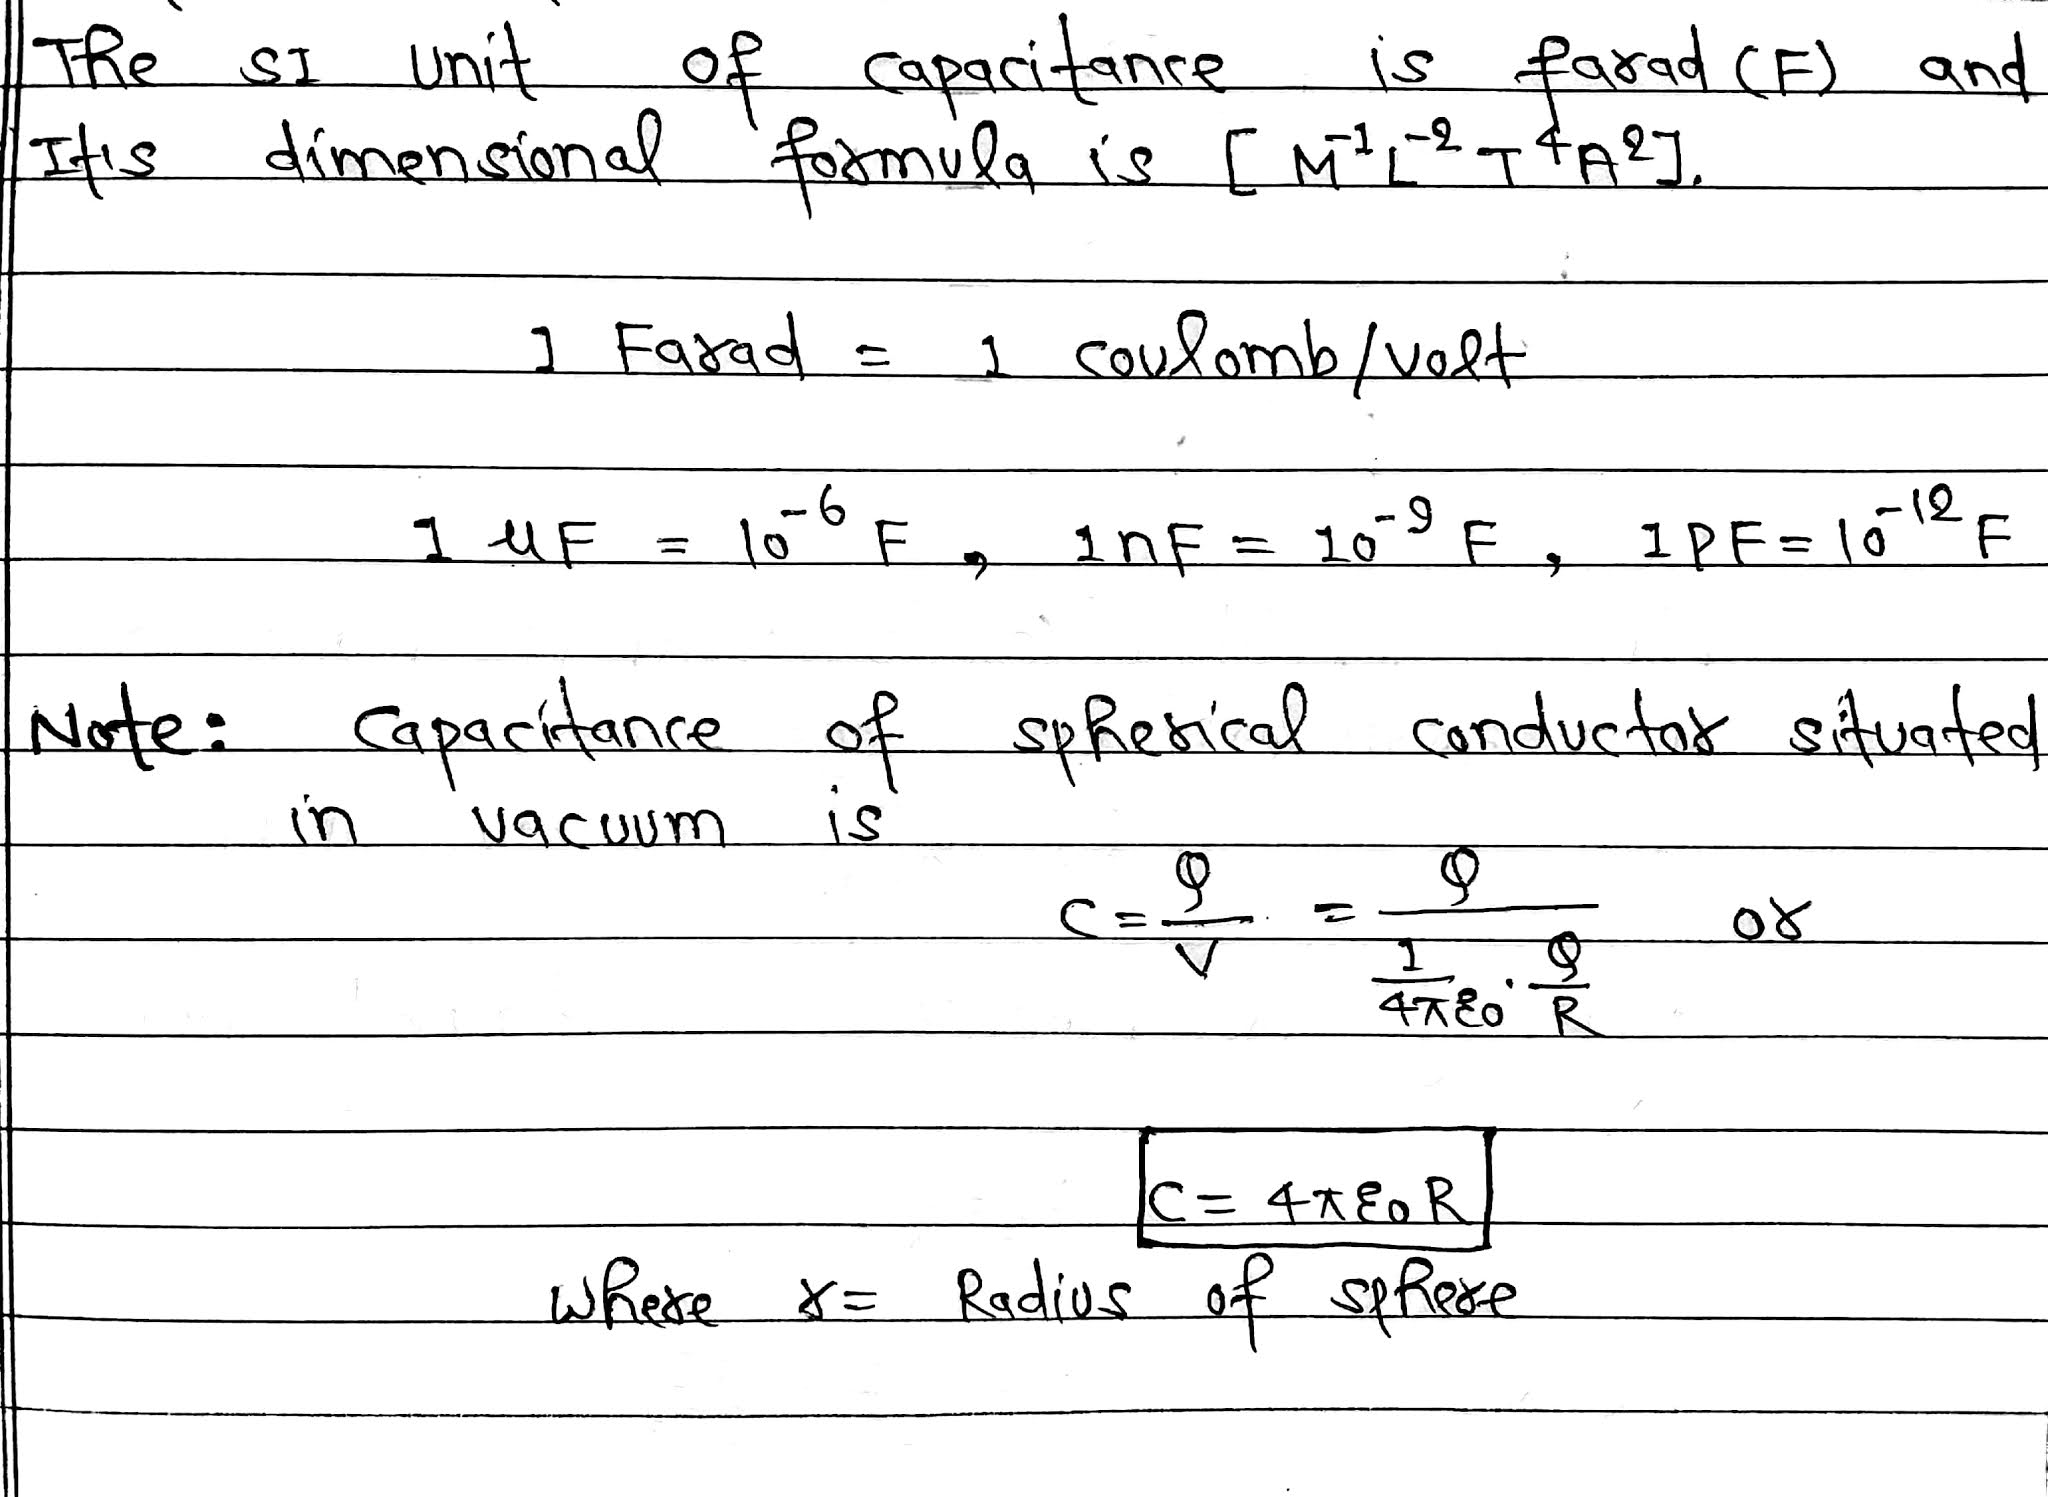 The SI unit of capacitance is farad (F) and
It's dimensional formula is [M⁻¹L⁻²T⁴A²].
1 Farad = 1 coulomb/volt
1 μF = 10⁻⁶ F, 1nF = 10⁻⁹ F, 1PF = 10⁻¹² F
Note: Capacitance of spherical conductor situated
in vacuum is
C = Q/V = Q/(1/4πε0 · Q/R) or
C = 4πε0R
where r = Radius of sphere